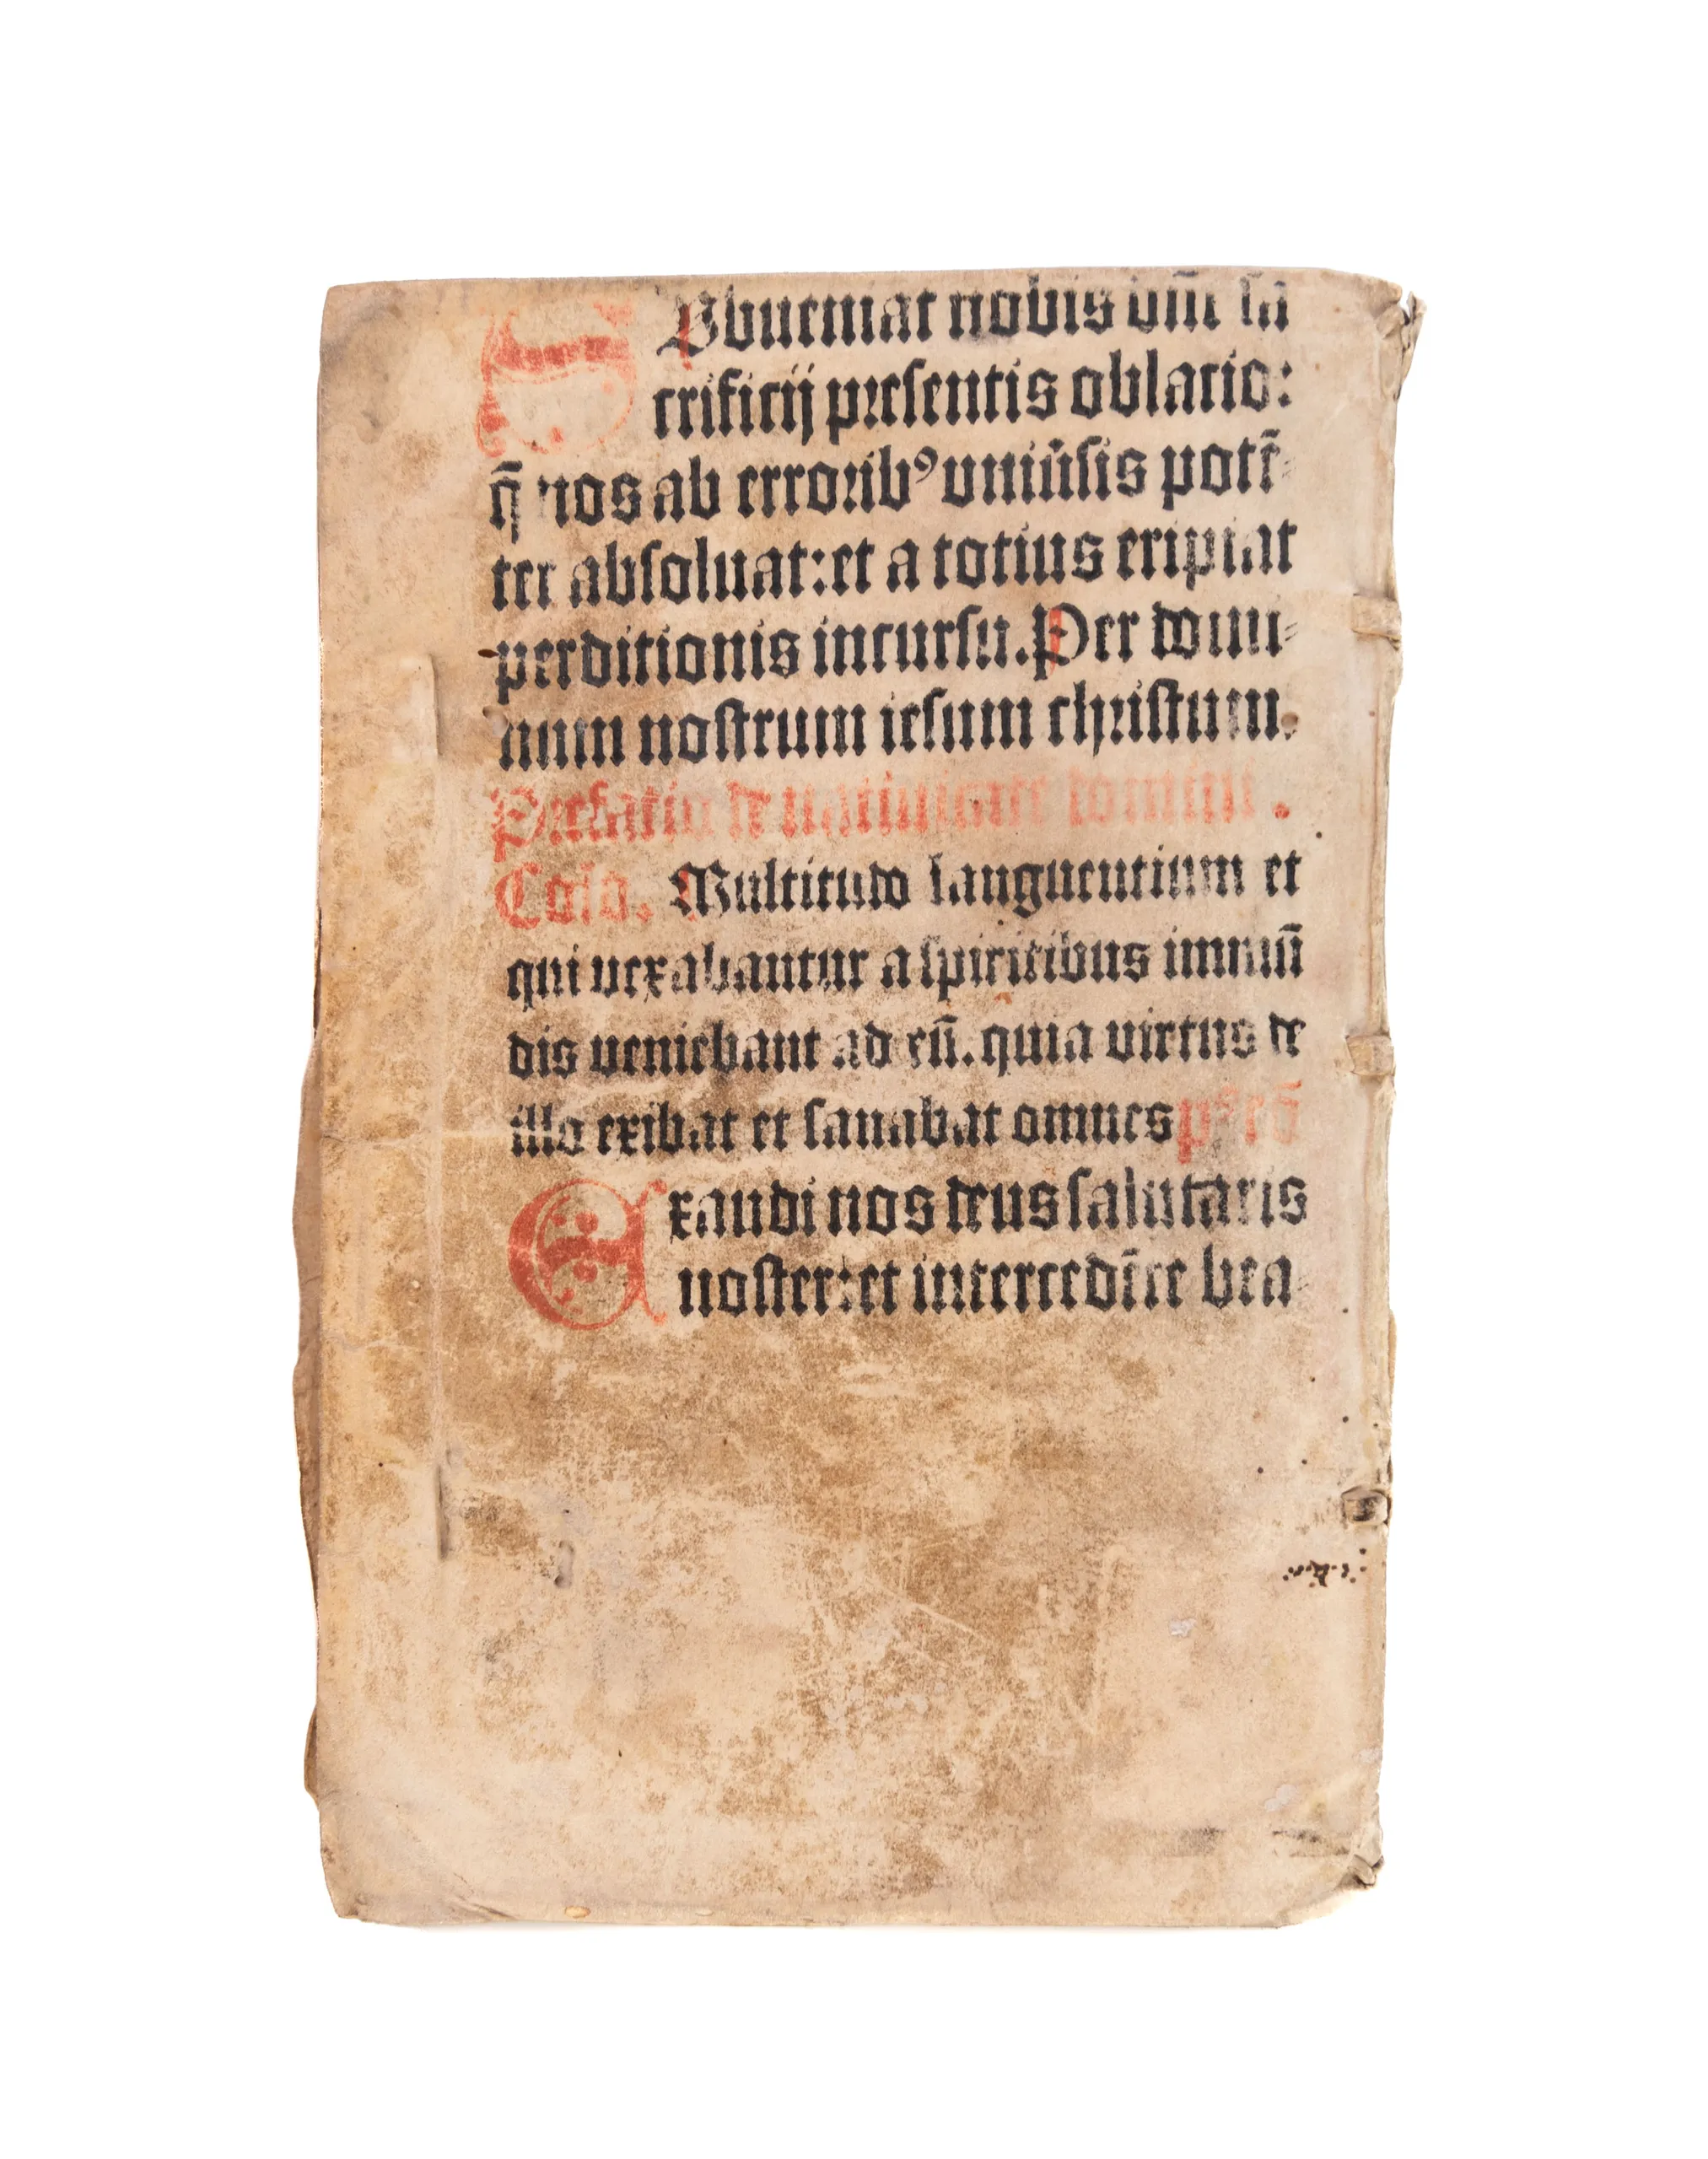 Subueniat nobis dñe sa
crificij presentis oblatio:
q̄ nos ab errorib⁹ vniũsis potē-
ter absoluat: et a totius eripiat
perditionis incursu. Per domi-
num nostrum iesum christum.
Prefatio de natiuitate domini.
Cõio. Multitudo languentium et
qui vexabantur a spiritibus immũ
dis veniebant ad eũ. quia virtus de
illo exibat et sanabat omnes
Exaudi nos deus salutaris
noster: et intercedẽte bea-